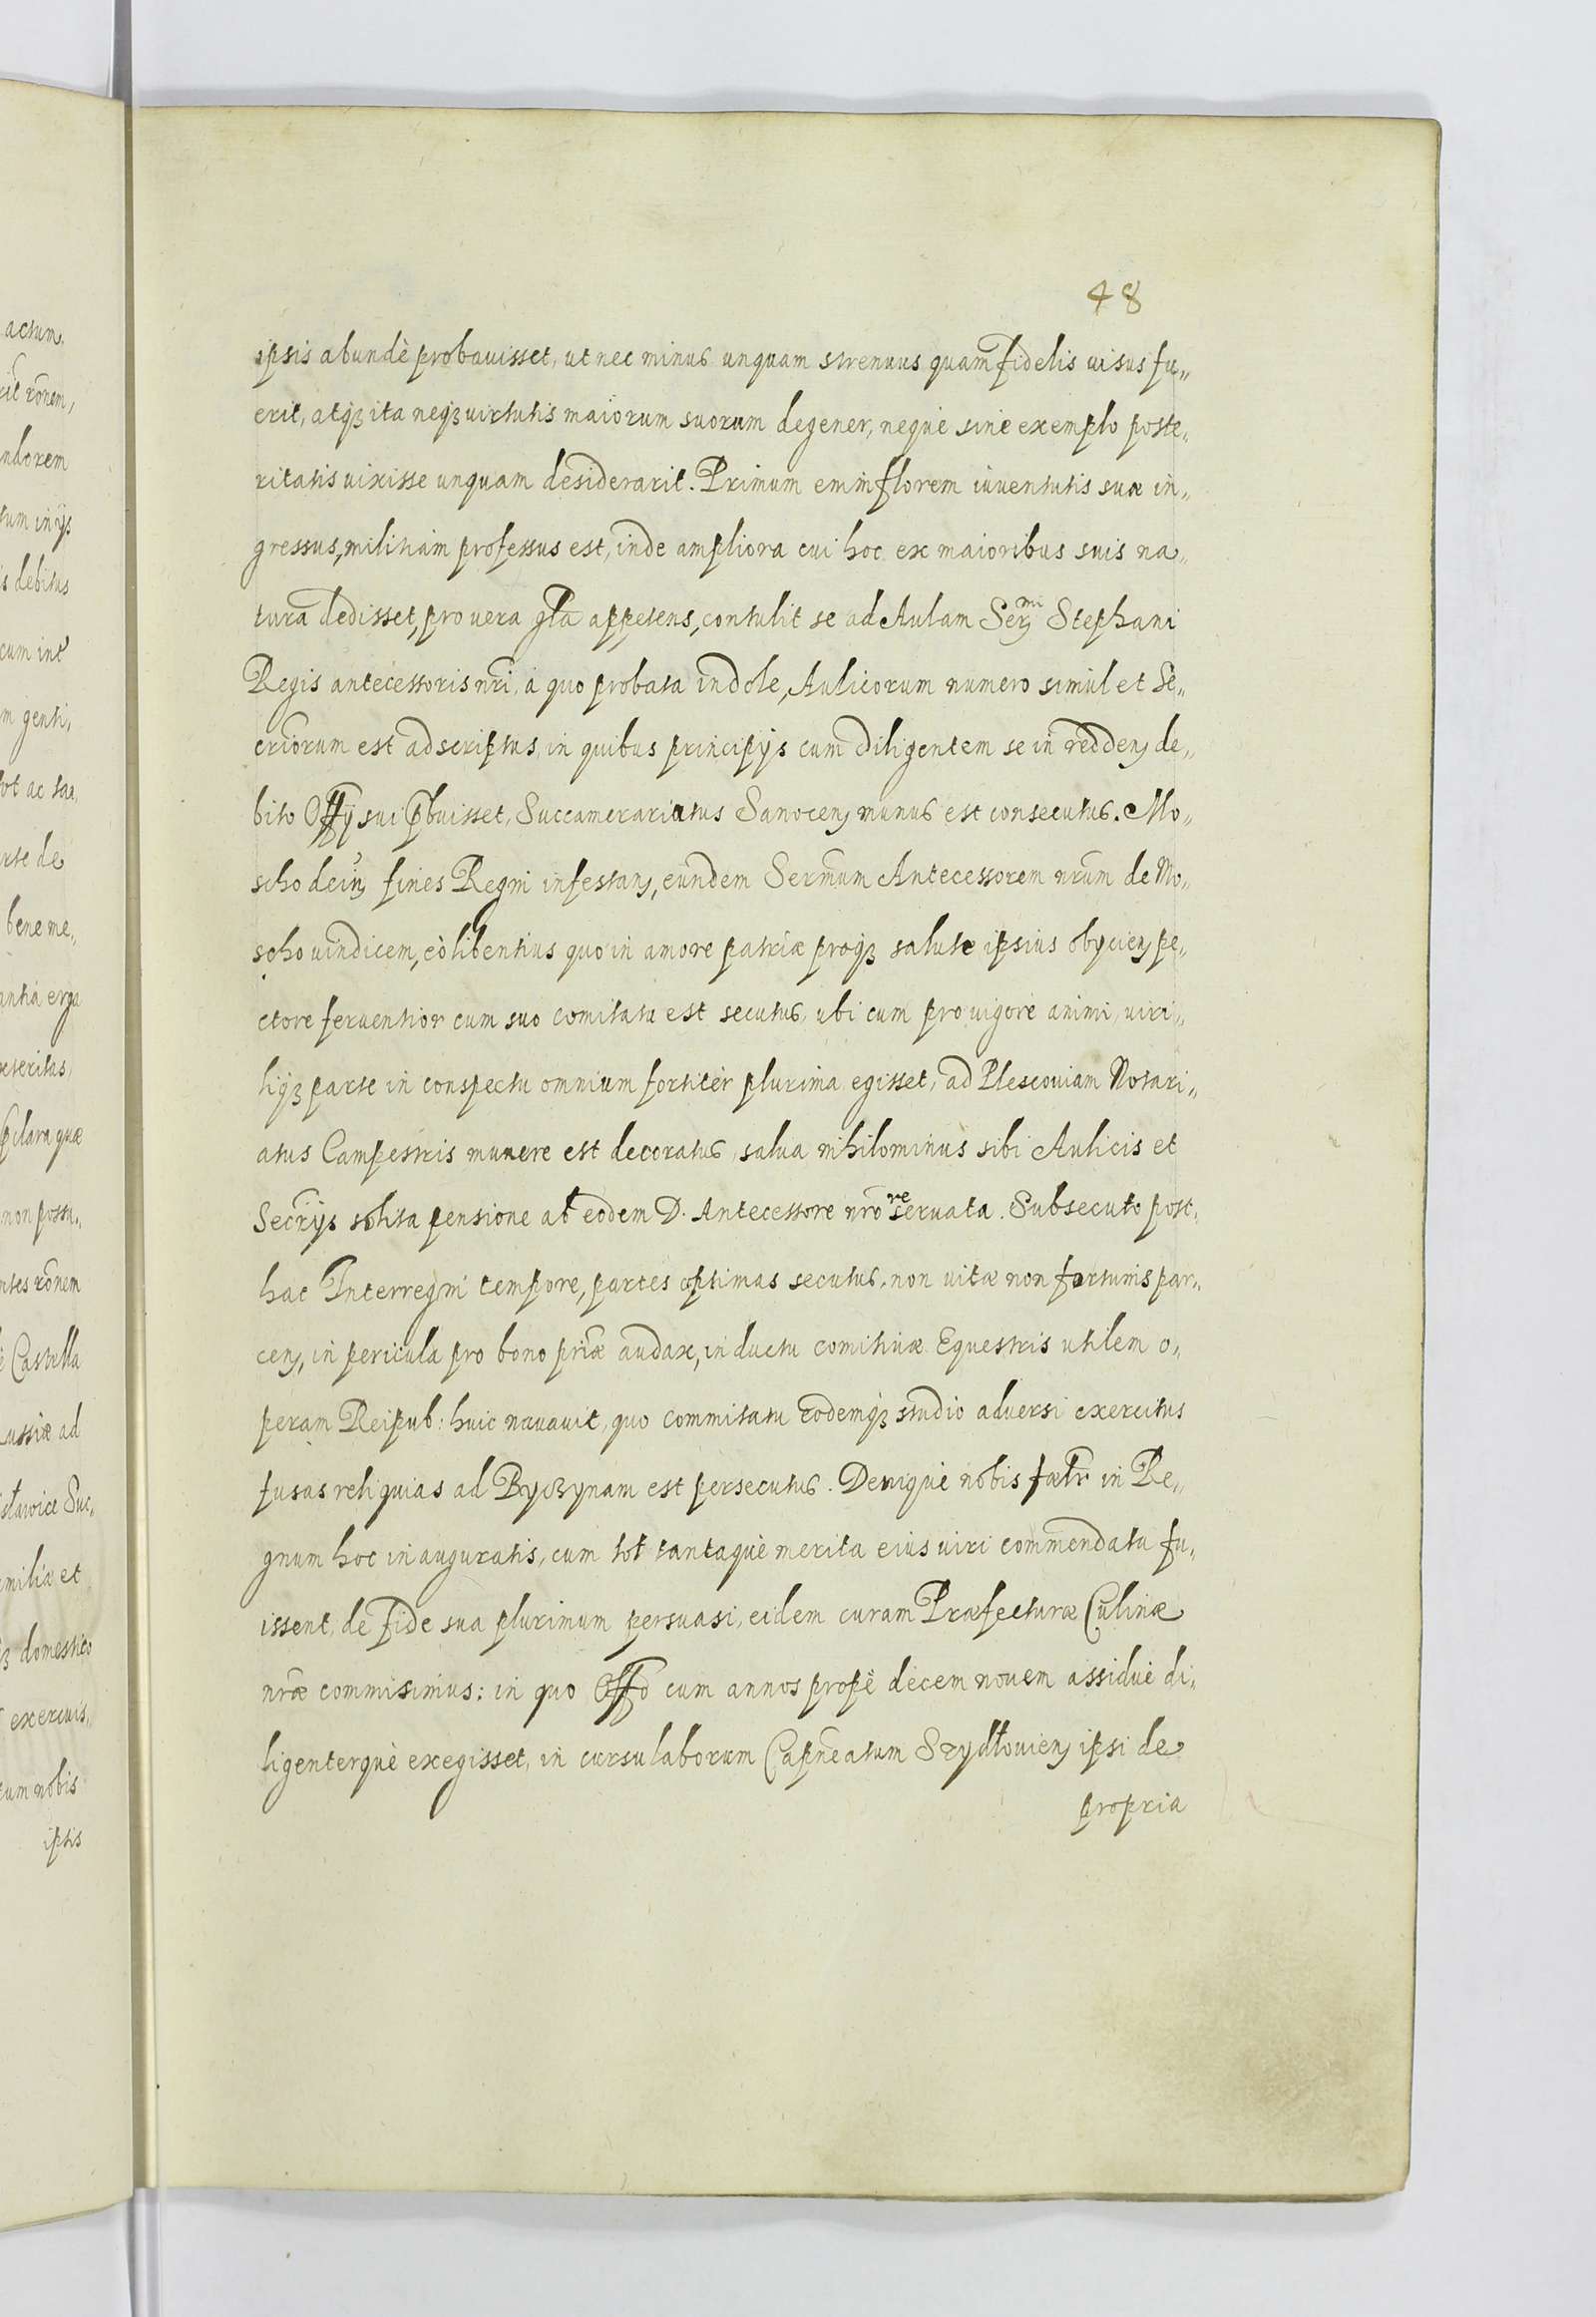 48
ipsis abundè probauisset, ut nec minus unquam strenuus quam fidelis uisus fu„
erit, atq3 ita neq3 virtutis maiorum suorum degener, nequè sine exemplo poste„
ritatis uixisse unquam desiderarit. Primum enim florem iuuentutis suæ in„
gressus, militiam professus est, inde ampliora cui hoc ex maioribus suis na„
tura dedisset, pro uera gl̃a appetens, contulit se ad Aulam Ser:mi Stephani
Regis antecessoris nr̃i, à quo probata indole, Aulicorum numero simul et Se„
cr̃iorum est adscriptus, in quibus principijs cum diligentem se in redden: de„
bito Off̃ij sui p̃buisset, Succamerariatus Sanocen: munus est consecutus. Mo„
scho dein: fines Regni infestan:, eundem Sermũm Antecessorem nrũm de Mo„
scho uindicem, eò libentius quo in amore patriæ proq3 salute ipsius obijcien: pe„
ctore feruentior cum suo comitatu est secutus, ubi cum pro uigore animi, uiri„
liq3 parte in conspectu omnium fortitèr plurima egisset, ad Plescouiam Notari„
atus Campestris munere est decoratus, salua nihilominus sibi Aulicis et
Secr̃ijs solita pensione ab eodem D. Antecessore nrõ reseruata. Subsecuto post„
hac Interregni tempore, partes optimas secutus, non uitæ non fortunis par„
cen:, in pericula pro bono pr̃iæ audax, in ductu comitiuæ Equestris utilem o„
peram Reipub: huic nauauit, quo commitatu eodemq3 studio aduersi exercitus
fusas reliquias ad Byczynam est persecutus. Deniquè nobis fælr̃ in Re„
gnum hoc inauguratis, cum tot tantaquè merita eius uiri commendata fu„
issent, de fide sua plurimum persuasi, eidem curam Præfecturæ Culinæ
nr̃æ commisimus: in quo Off̃o cum annos propè decem nouem assiduè di„
ligenterquè exegisset, in cursu laborum Capneãtum Szydłouien: ipsi de
propria
actum,
rit rõnem,
ndorem
tum in ijs
is debitus
cum int
m genti„
ot ac tan
rte de
bene me„
antia erga
xteritas
p̃clara quæ
non possu„
ntes rõnem
è Castella
ussiæ ad
stawice Suc„
miliæ et
3 domestico
exercuis„
tum nobis
ipsis